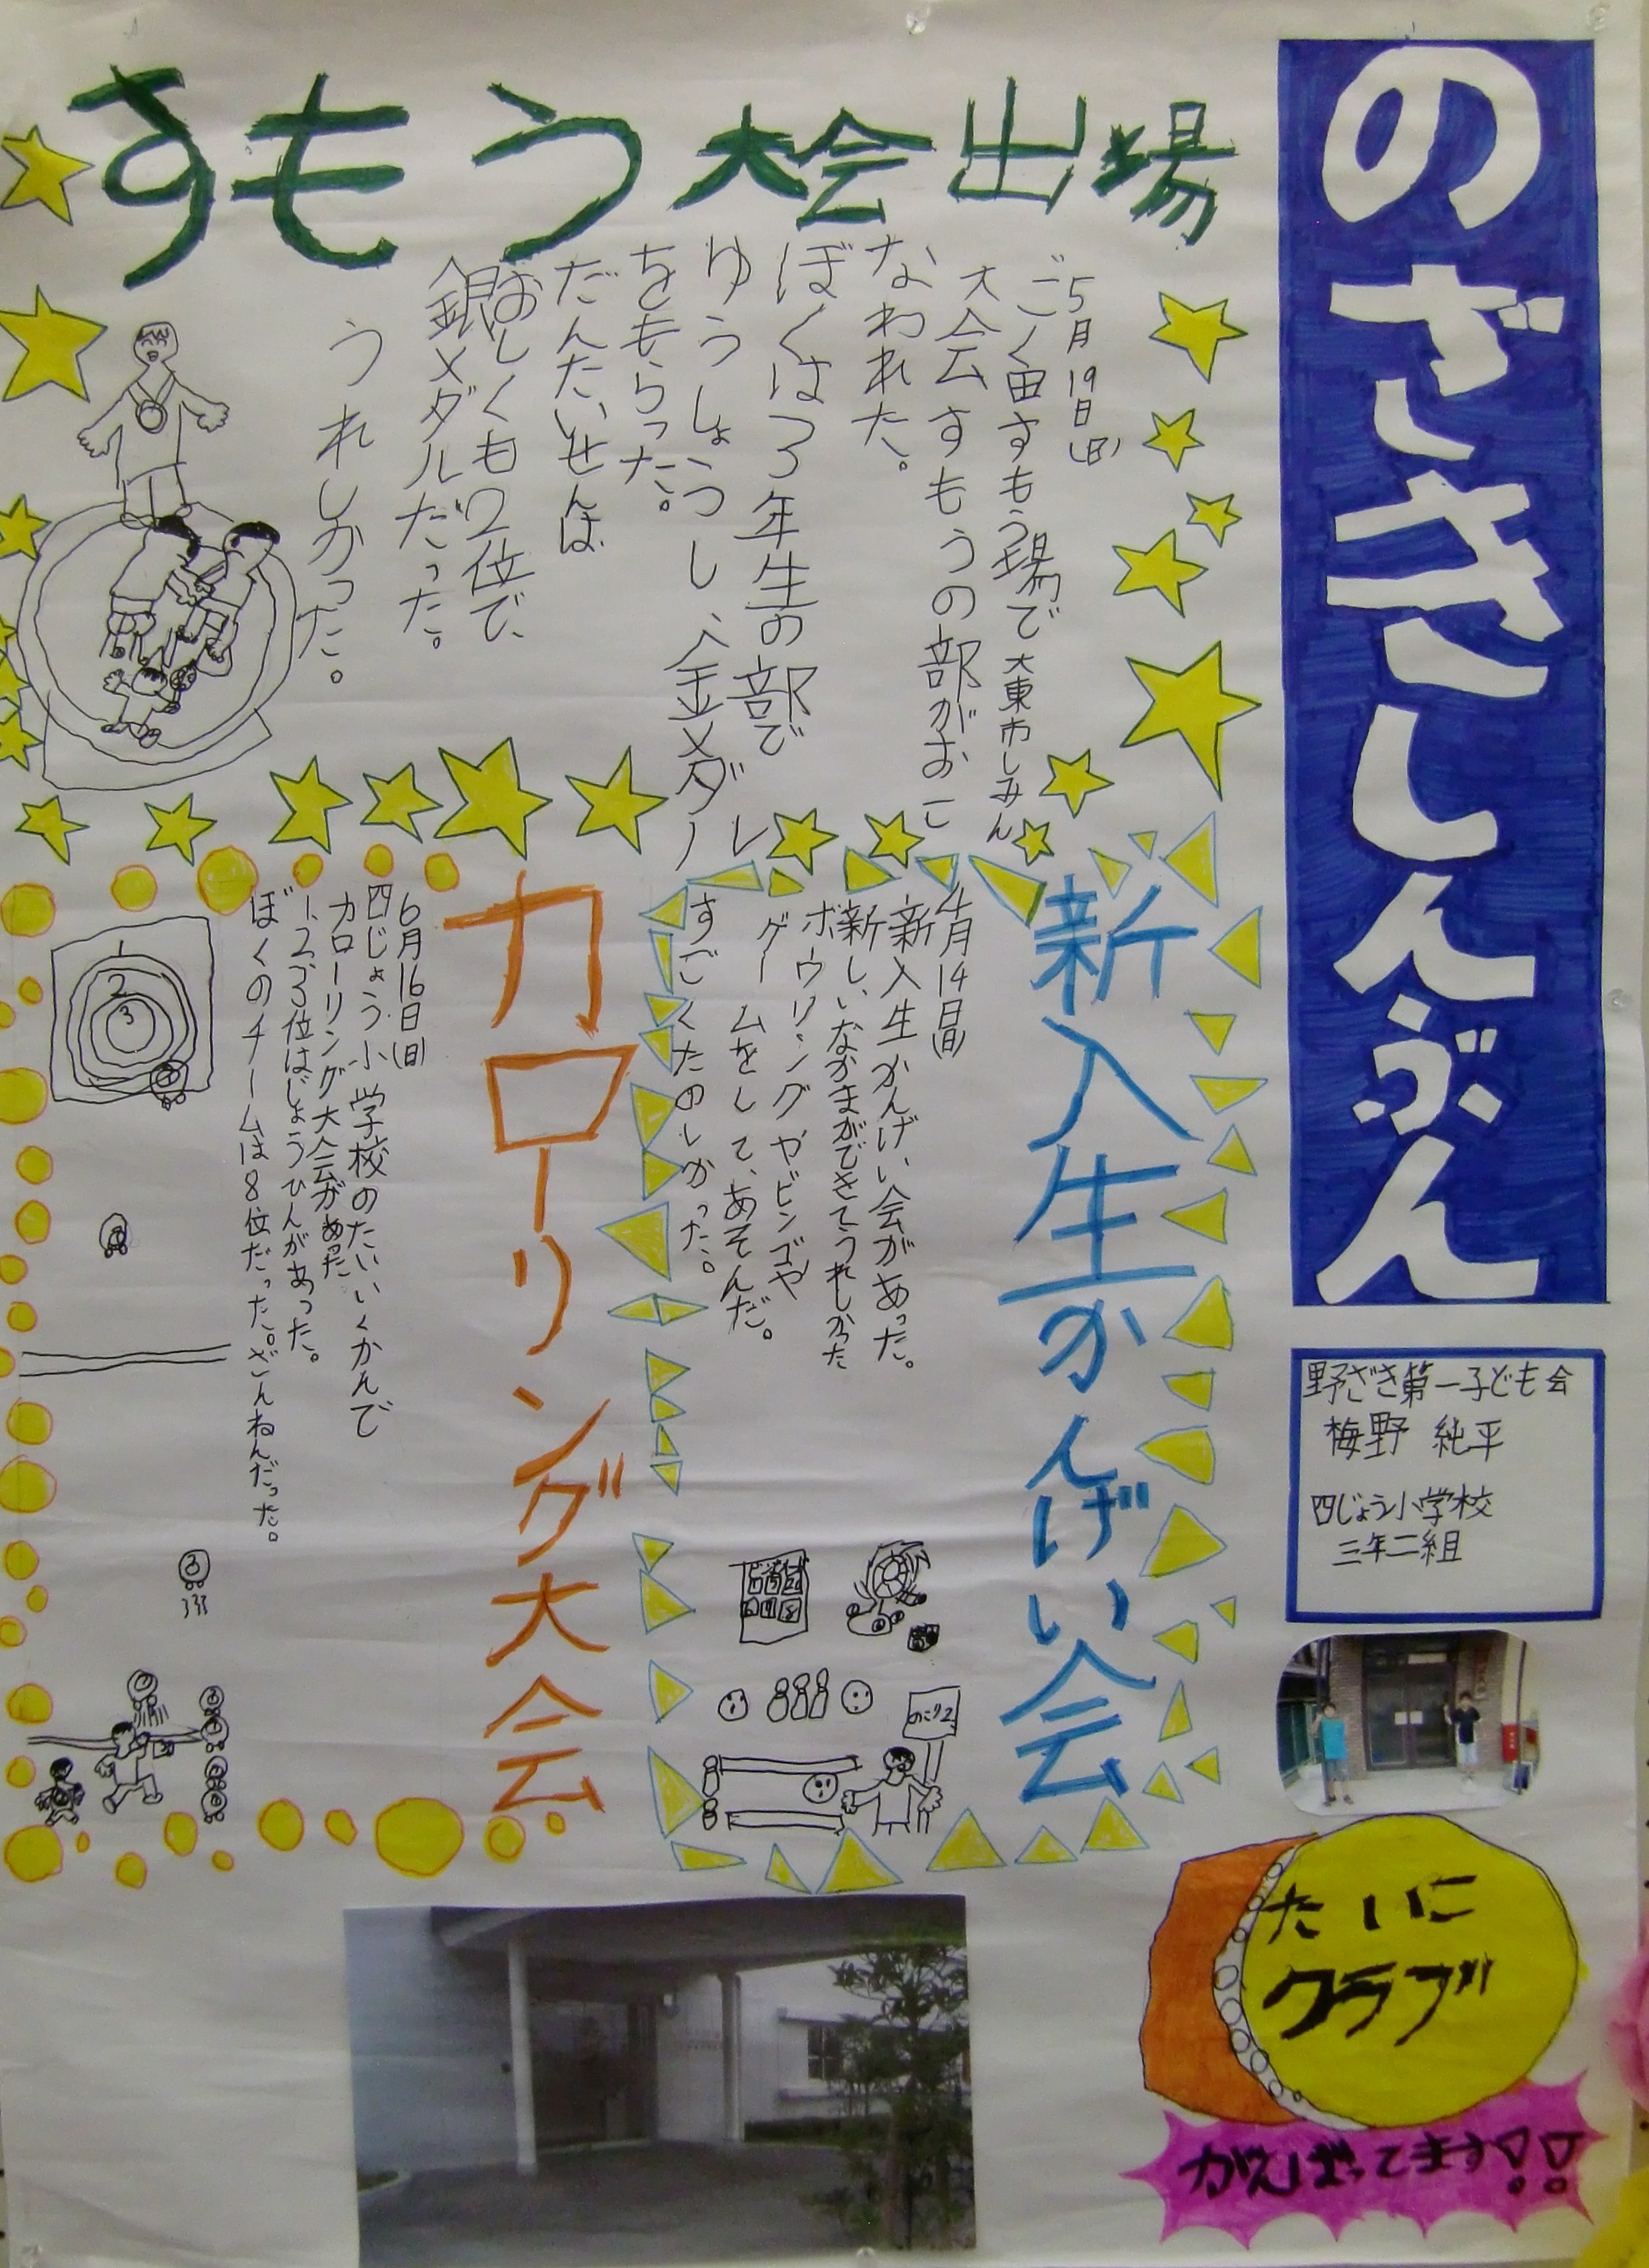 のざきしんぶん
野ざき第一子ども会
梅野 純平
四じょう小学校
三年二組
すもう大会出場
5月19日(日)
ごく由すもう場で大東市しみん
大会すもうの部がおこ
なわれた。
ぼくは3年生の部で
ゆうしょうし、金メダル
をもらった。
だんたいせんは
おしくも2位で、
銀メダルだった。
うれしかった。
新入生かんげい会
4月14日(日)
新入生かんげい会があった。
新しいなかまができてうれしかった
ボウリングやビンゴや
ゲームをして、あそんだ。
すごくたのしかった。
のこり2
カローリング大会
6月16日(日)
四じょう小学校のたいいくかんで
カローリング大会があった
1、2、3位はしょうひんがあった。
ぼくのチームは8位だった。ざんねんだった。
1
2
3
たいこ
クラブ
がんばってます!!